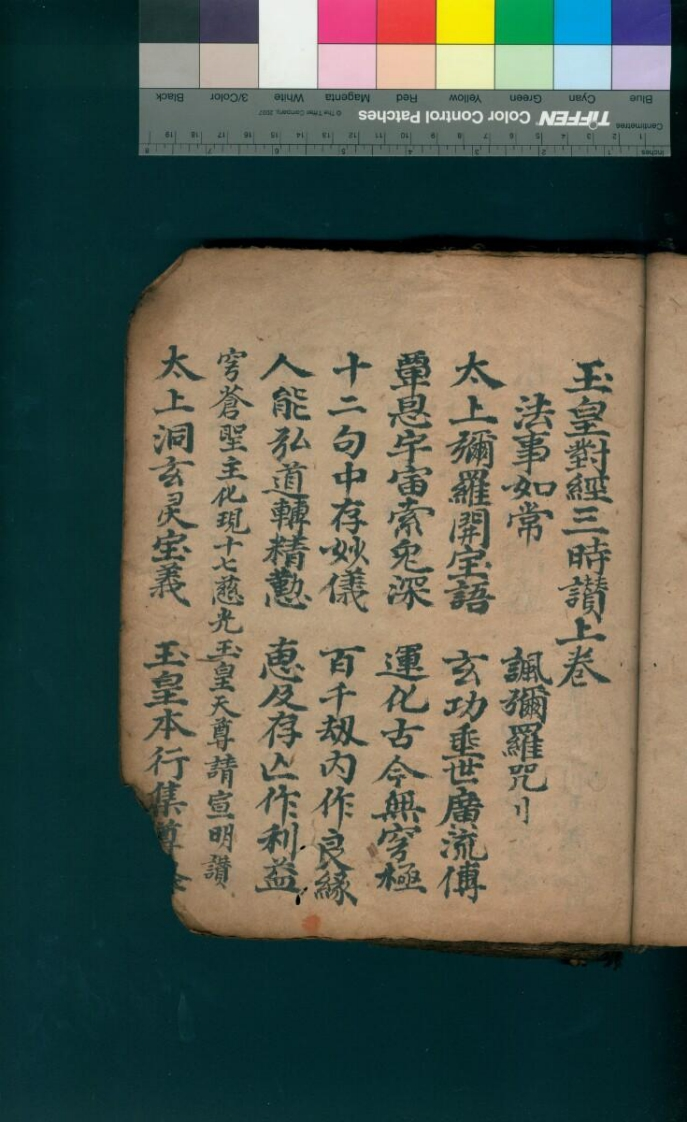 Blue Cyan Green Yellow Red Magenta White 3/Color Black
TIFFEN Color Control Patches © The Tiffen Company, 2007
Centimetres
Inches
玉皇對經三時讃上卷
法事如常 諷彌羅咒刂
太上彌羅開宝語 玄功垂世廣流傳
覃恩宇宙索 深 運化古今無窮極
十二句中存妙儀 百千劫内作良緣
人能弘道轉精懃 惠及存亾作利益
穹蒼聖主化現十七慈光玉皇天尊請宣明讃
太上洞玄灵宝義 玉皇本行集